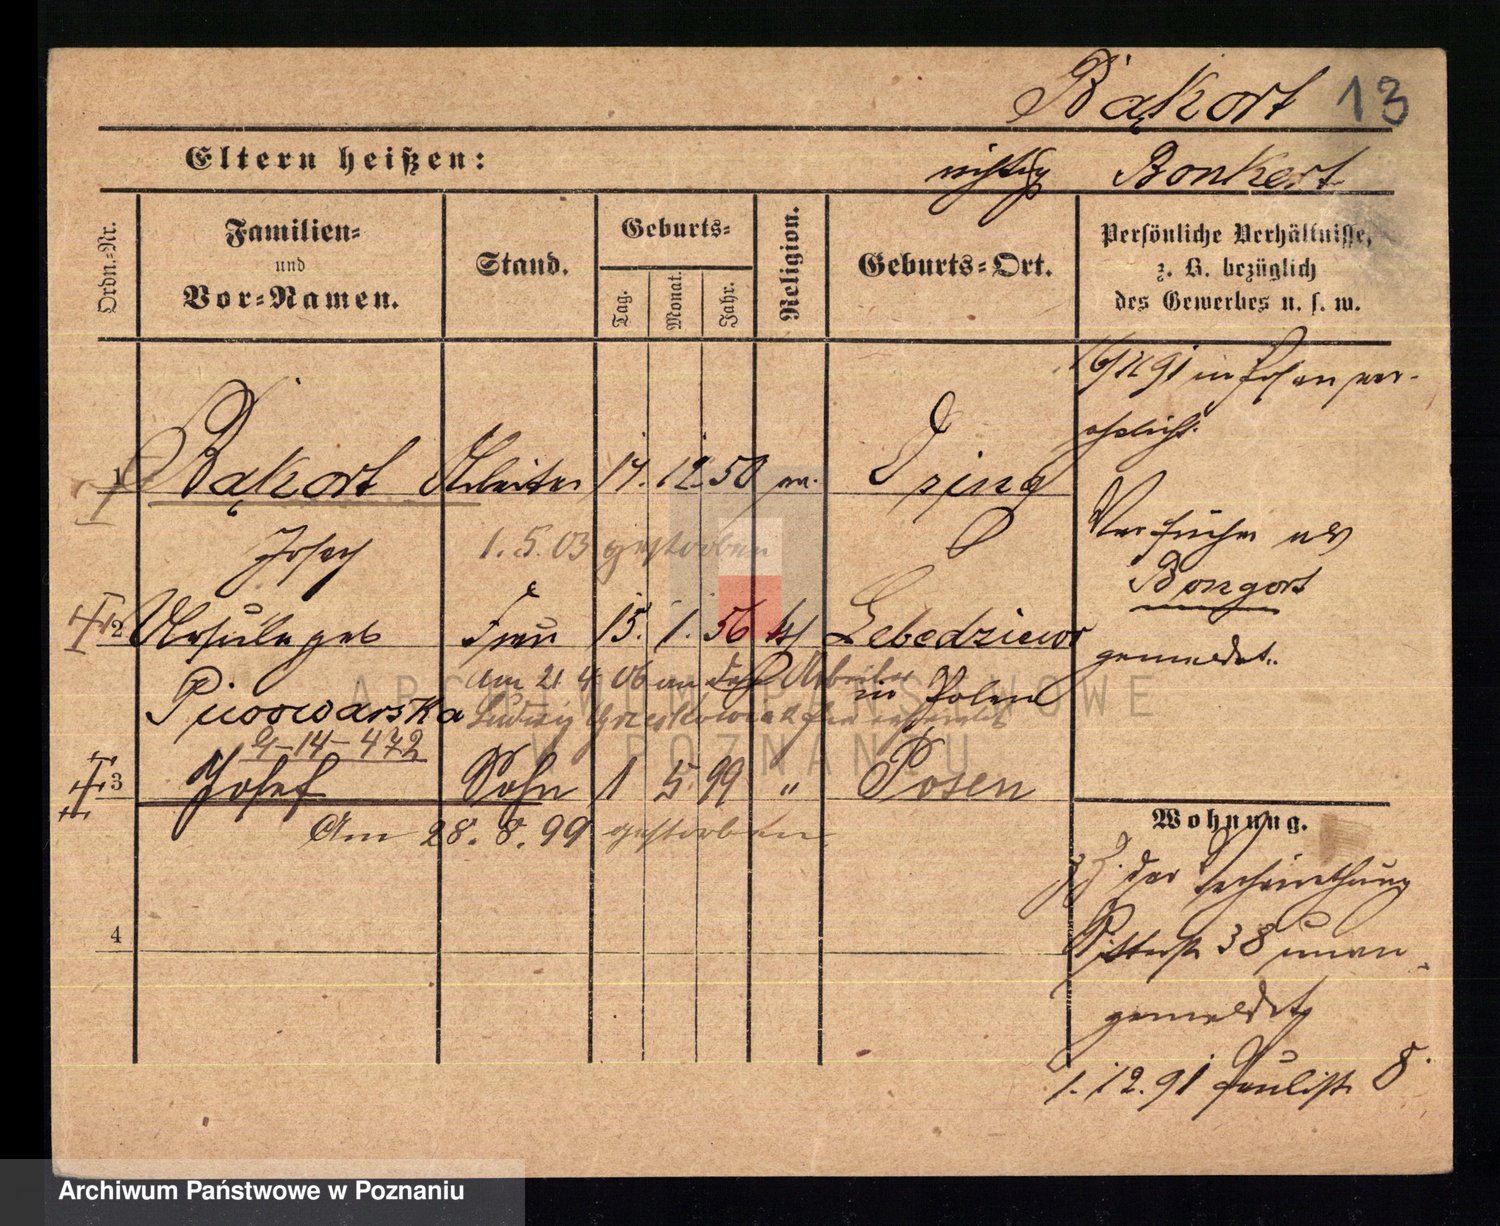 Bąkort 13
Eltern heißen:
richtig Bonkert
Ordn.-Nr.
Familien-
und
Vor-Namen.
Stand.
Geburts-
Tag.
Monat.
Jahr.
Religion.
Geburts-Ort.
Persönliche Verhältnisse,
z. B. bezüglich
des Gewerbes u. s. w.
in Posen ver-
ehelicht.
1 Bąkort Arbeiter 17. 12. 50
Josef 1. 5. 03 gestorben
Bongort
gemeldet.
2 Ursula geb Frau 15. 1. 56 kth
Am 21 4 06 an den Arbeiter
in Polen
Piwowarska Ludwig
2-14-472
3 Josef Sohn 1 5. 99 " Posen
Am 28. 8. 99 gestorben
Wohnung.
der
Ritterstr 38 unan
gemeldet
4
1. 12. 91 Paulist. 8.
ARCHIWUM PAŃSTWOWE
W POZNANIU
Archiwum Państwowe w Poznaniu